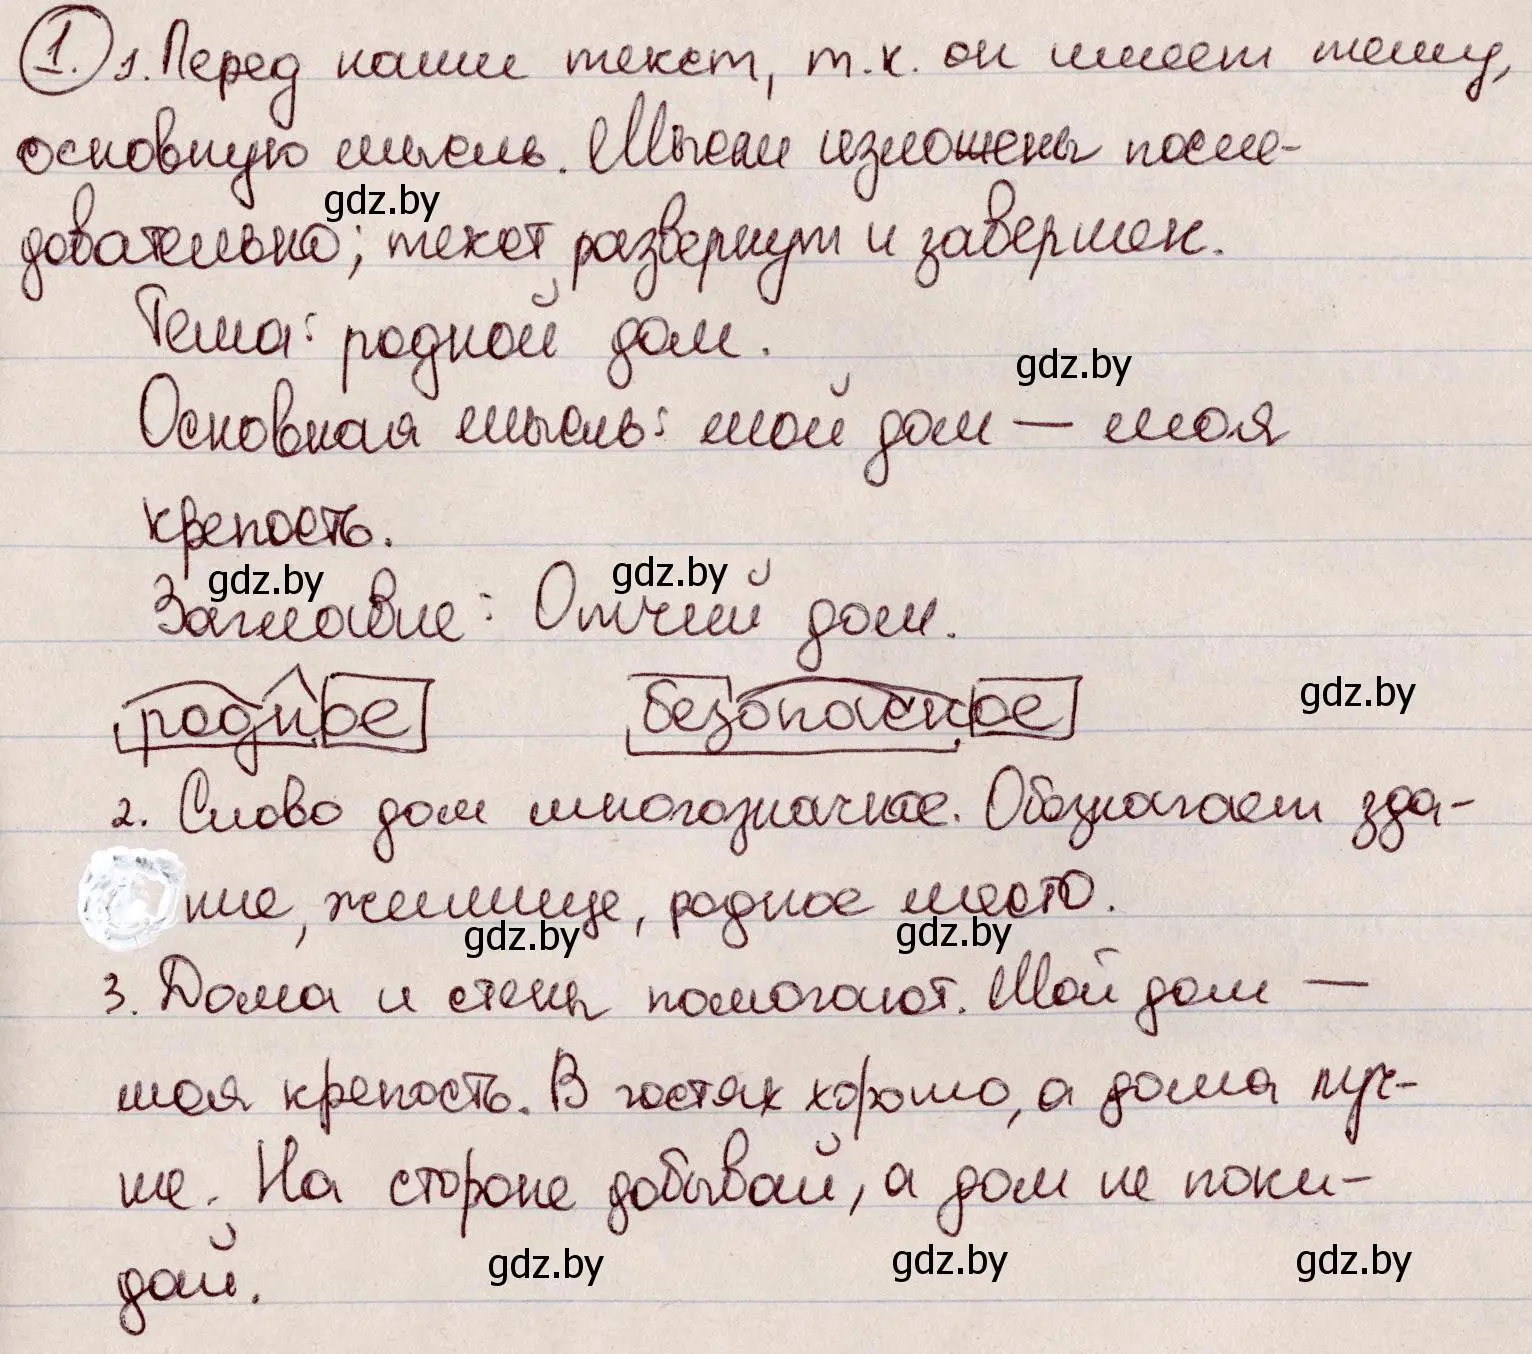 1. 1. Перед нами текст, т.к. он имеет тему,
основную мысль. Мысли изложены после-
gdz.by
довательно; текст развернут и завершен.
Тема: родной дом.
gdz.by
Основная мысль: мой дом — моя
крепость.
gdz.by gdz.by
Заглавие: Отчий дом.
gdz.by
родное безопасное
2. Слово дом многозначное. Обозначает зда-
ние, жилище, родное место.
gdz.by gdz.by
3. Дома и стены помогают. Мой дом —
моя крепость. В гостях хорошо, а дома луч-
ше. На стороне добывай, а дом не поки-
дай.
gdz.by gdz.by gdz.by